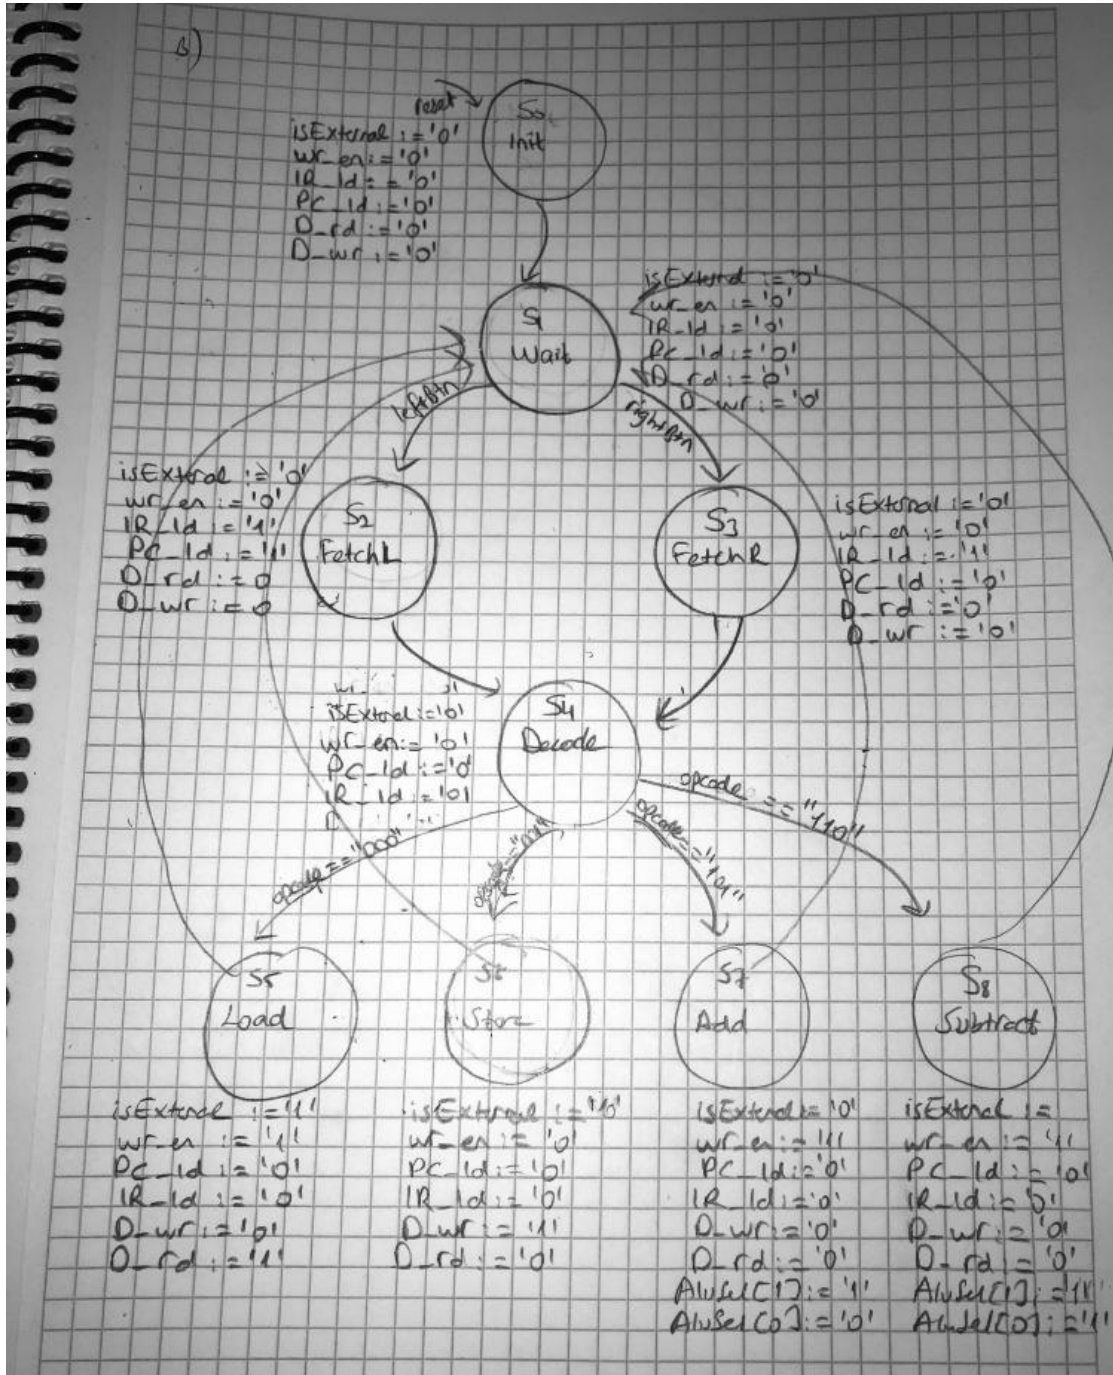 B)
reset
S0
Init
isExternal := '0'
wr_en := '0'
IR_ld := '0'
PC_ld := '0'
D_rd := '0'
D_wr := '0'
S1
Wait
isExternal := '0'
wr_en := '0'
IR_ld := '0'
PC_ld := '0'
D_rd := '0'
D_wr := '0'
leftBtn
rightBtn
isExternal := '0'
wr_en := '0'
IR_ld := '1'
PC_ld := '1'
D_rd := 0
D_wr := 0
S2
FetchL
S3
FetchR
isExternal := '0'
wr_en := '0'
IR_ld := '1'
PC_ld := '0'
D_rd := '0'
D_wr := '0'
isExternal := '0'
wr_en := '0'
PC_ld := '0'
IR_ld := '0'
S4
Decode
opcode == "000"
opcode == "001"
opcode == "101"
opcode == "110"
S5
Load
S6
Store
S7
Add
S8
Subtract
isExternal := '1'
wr_en := '1'
PC_ld := '0'
IR_ld := '0'
D_wr := '0'
D_rd := '1'
isExternal :=
wr_en := '0'
PC_ld := '0'
IR_ld := '0'
D_wr := '1'
D_rd := '0'
isExternal := '0'
wr_en := '1'
PC_ld := '0'
IR_ld := '0'
D_wr := '0'
D_rd := '0'
AluSel[1] := '1'
AluSel[0] := '0'
isExternal :=
wr_en := '1'
PC_ld := '0'
IR_ld := '0'
D_wr := '0'
D_rd := '0'
AluSel[1] := '1'
AluSel[0] := '1'